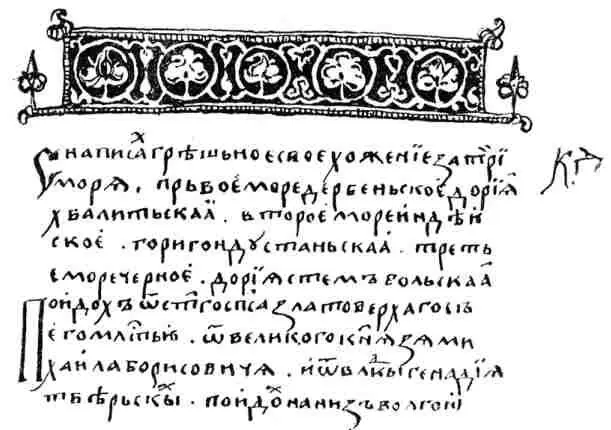 написаⷯ грѣшьноесвоехоженїе за трї
моря . прьвоеморедербеньскоедорїа
хвалитьскаа . второемореиндѣи
ское . горигондустаньскаа . треть
еморечерное . дорїястемъвольскаа
Поидохъ ѿст҃госп҃сазлатоверхагосъ
егомл҃тью . ѿвеликогокн҃язями
хаилаборисовичя . и ѿвлⷣкыгенадїя
твѣрьскⷯы . поидоⷯнанизъволгою